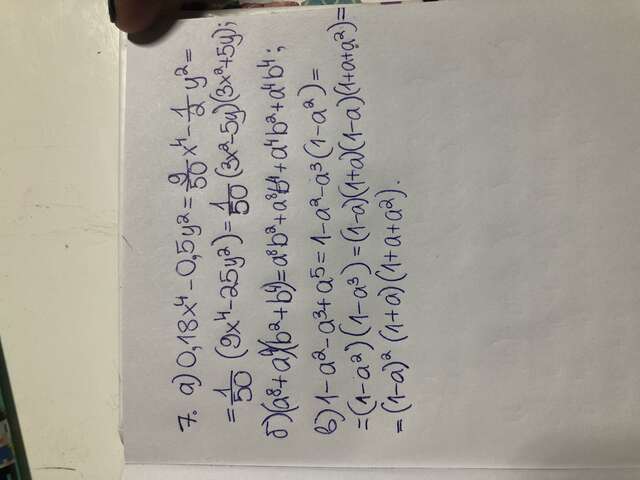 7. а) 0,18x⁴ - 0,5y² = 9/50 x⁴ - 1/2 y² =
= 1/50 (9x⁴ - 25y²) = 1/50 (3x² - 5y)(3x² + 5y);
б) (a⁸ + a⁴)(b² + b⁴) = a⁸b² + a⁸b⁴ + a⁴b² + a⁴b⁴;
в) 1 - a² - a³ + a⁵ = 1 - a² - a³ (1 - a²) =
= (1 - a²) (1 - a³) = (1 - a)(1 + a)(1 - a)(1 + a + a²) =
= (1 - a)² (1 + a)(1 + a + a²).